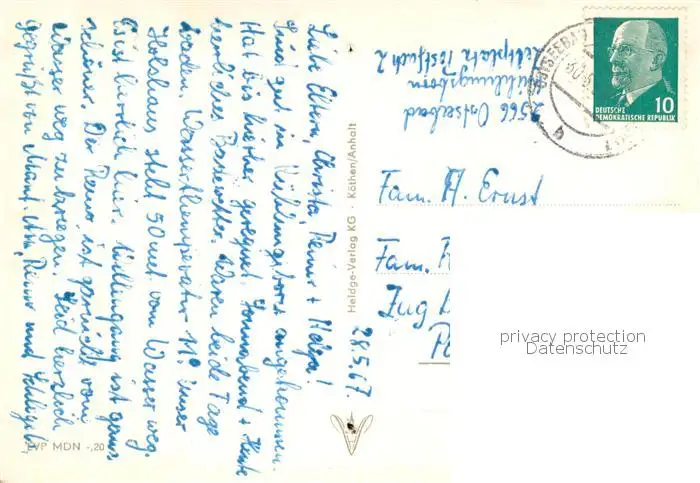 28.5.67.
Liebe Eltern, Christa, Reiner + Helga!
Sind gut in Kühlungsborn angekommen.
Hat bis hierher geregnet. Sonnabend + Heute
herrliches Badewetter. Waren beide Tage
baden Wassertemperatur 11° unser
Holzhaus steht 50 met. vom Wasser weg.
Es ist herrlich hier. Kühlungsborn ist ganz
schöner. Der Reiner ist garnicht vom
Wasser weg zu kriegen. Seid herzlich
gegrüßt von Reiner und
EVP MDN -,20
Heldge-Verlag KG · Köthen/Anhalt
2566 Ostseebad
Kühlungsborn
Zeltplatz Postfach 2
OSTSEEBAD
DEUTSCHE
DEMOKRATISCHE REPUBLIK
10
Fam. H. Ernst
Fam.
Zug
privacy protection
Datenschutz